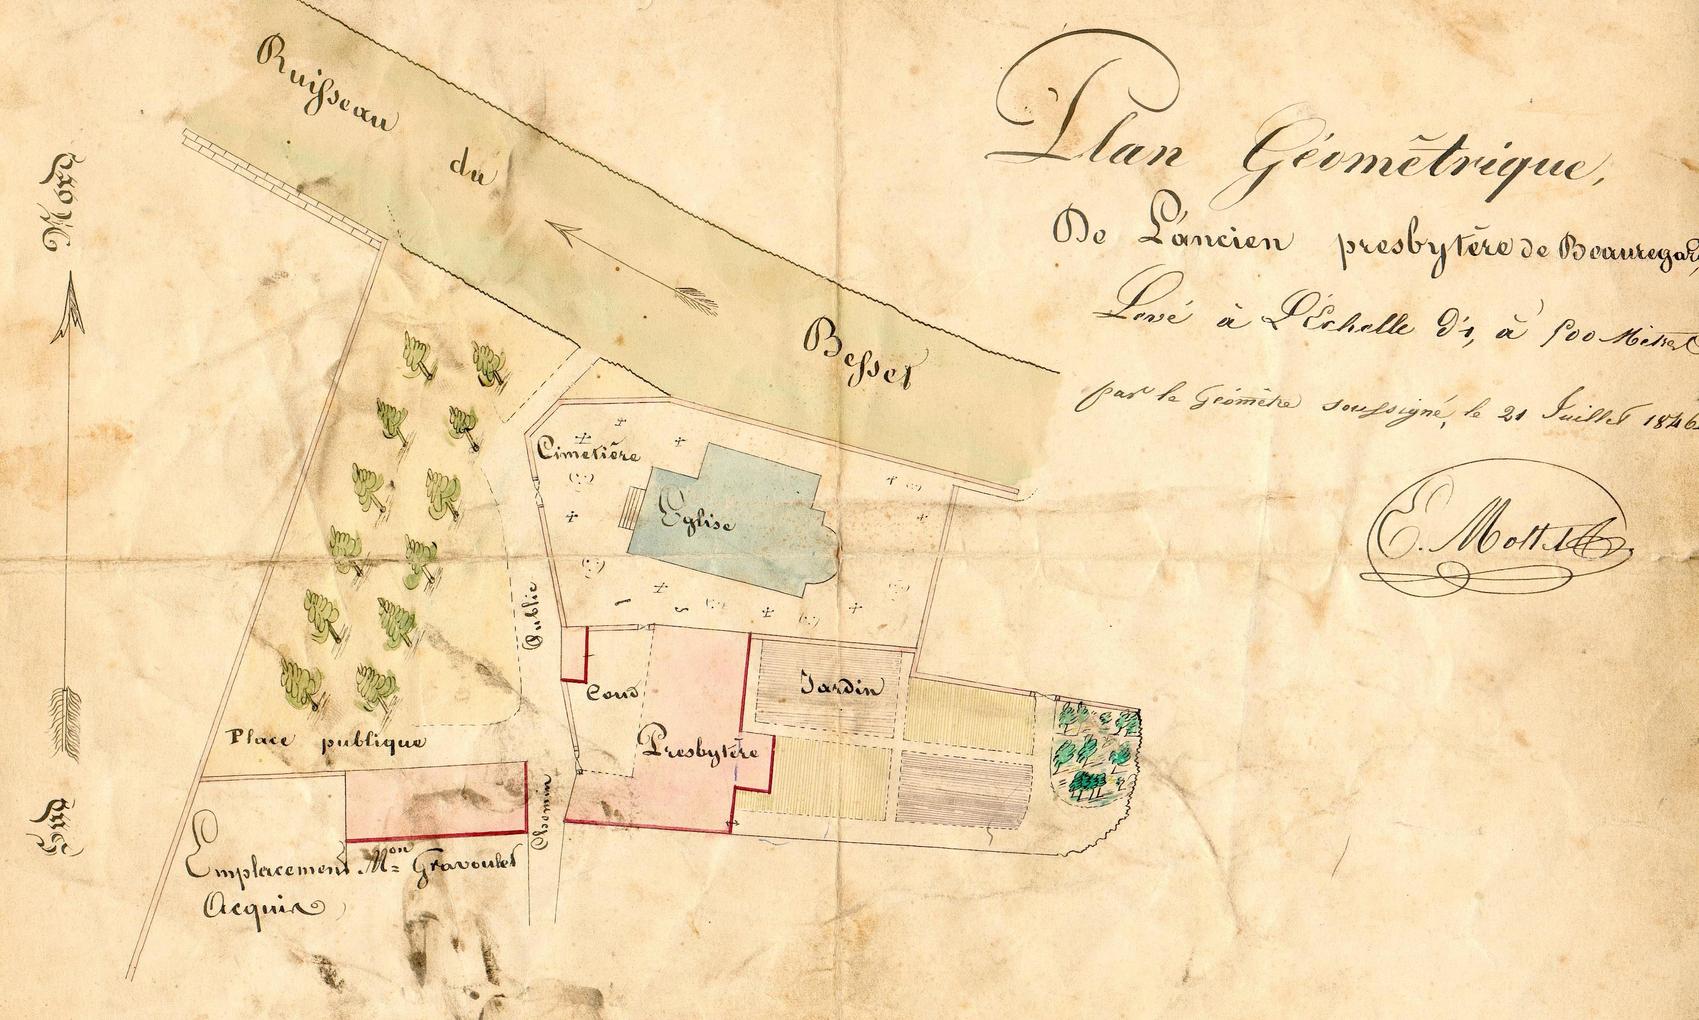 Plan Géométrique,
De L'ancien presbytère de Beauregar
Levé à L'Échelle d'1, à 500 Mètres
par le Géomètre soussigné, le 21 Juillet 1846
E. Mottet
Ruisseau du Besset
Nord
Sud
Cimetière
Eglise
Public
Chemin
Cour
Jardin
Presbytère
Place publique
Emplacement
Acquis
Mon Gravoulet